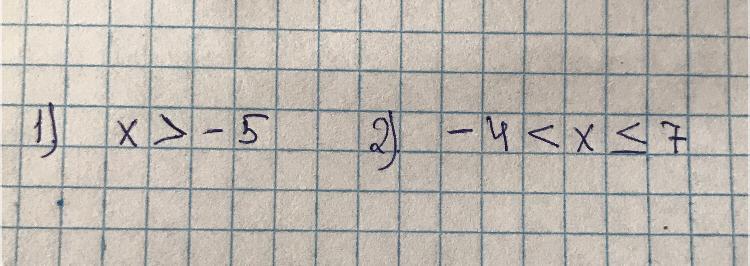 1) x > -5 2) -4 < x ≤ 7